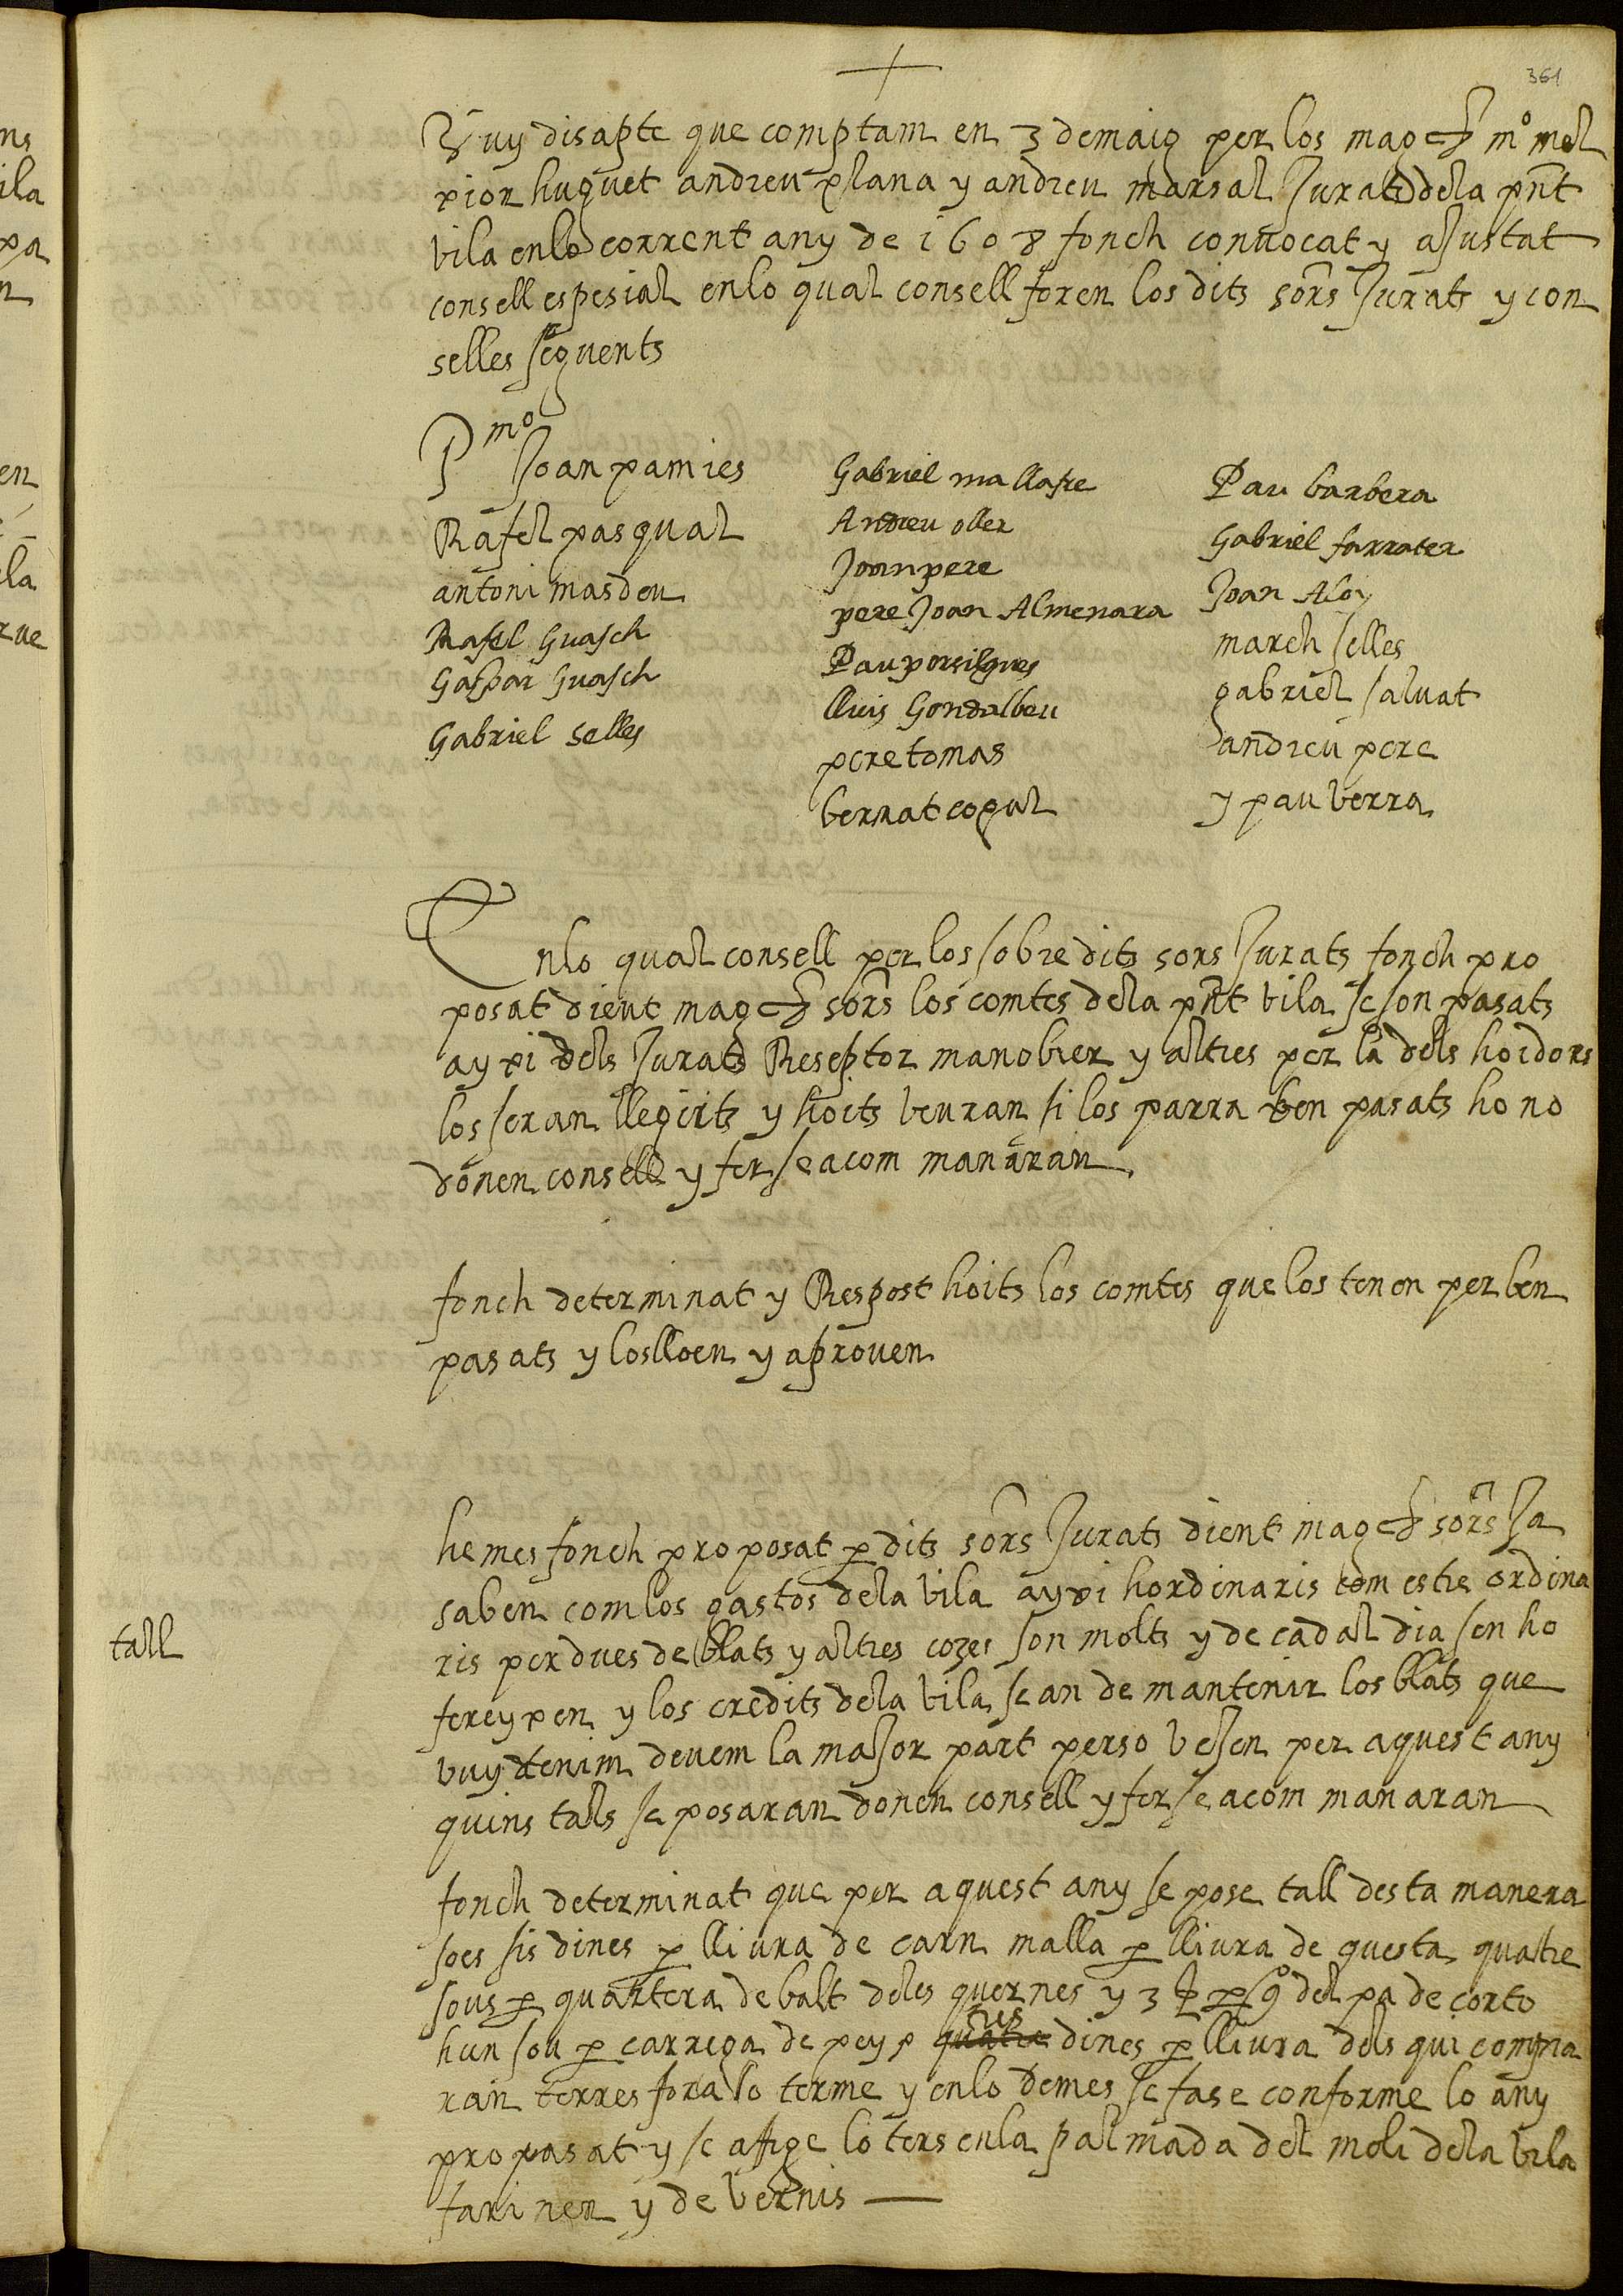 361
Vuy disapte que comptam en 3 de maig per los magchs mº mel
xior huguet andreu plana y andreu marsal Jurats dela pñt
vila enlo corrent any de 1608 fonch convocat y aJustat
consell espesial enlo qual consell foren los dits sors Jurats y con
selles seguents
Pmo Joan pamies
Rafel pasqual
antoni masdeu
Rafel Guasch
Gaspar Guasch
Gabriel selles
Gabriel mallafre
Andreu oller
Joan pere
pere Joan Almenara
Pau porsilgues
lluis Gondalbeu
pere tomas
bernat cogul
Pau barbera
Gabriel farrater
Joan Aloy
march selles
gabriel salvat
andreu pere
y pau verra
Enlo qual consell per los sobredits sors Jurats fonch pro
posat dient magchs sors los comtes dela pñt vila se son pasats
ayxi dels Jurats Reseptor manobrer y altres per la dels hoidors
los seran llegirts y hoits veuran si los parra ben pasats ho no
donen consell y ferse a com manaran
fonch determinat y Respost hoits los comtes que los tenen per ben
pasats y loslloen y aproven
he mes fonch proposat p dits sors Jurats dient magchs sors Ja
saben com los gastos dela vila ayxi hordinaris com estre ordina
ris perdues de blats y altres cozes son molts y de cadal dia sen ho
fereyxen y los credits dela vila se an de mantenir los blats que
vuy tenim devem la maJor part perso veJen per aquest any
quins talls se posaran donen consell y ferse a com manaran
tall
fonch determinat que per aquest any se pose tall desta manera
soes sis dines p lliura de carn malla p lliura de questa quatre
sous p quartera de balt deles quernes y 3 p qº del pa de corto
hun sou p carrega de peyx quatre tres dines p lliura dels qui compra
ran terres fora lo terme y enlo demes se fase conforme lo any
propasat y se afige lo ters enla palmada del moli dela vila
fariner y de vernis